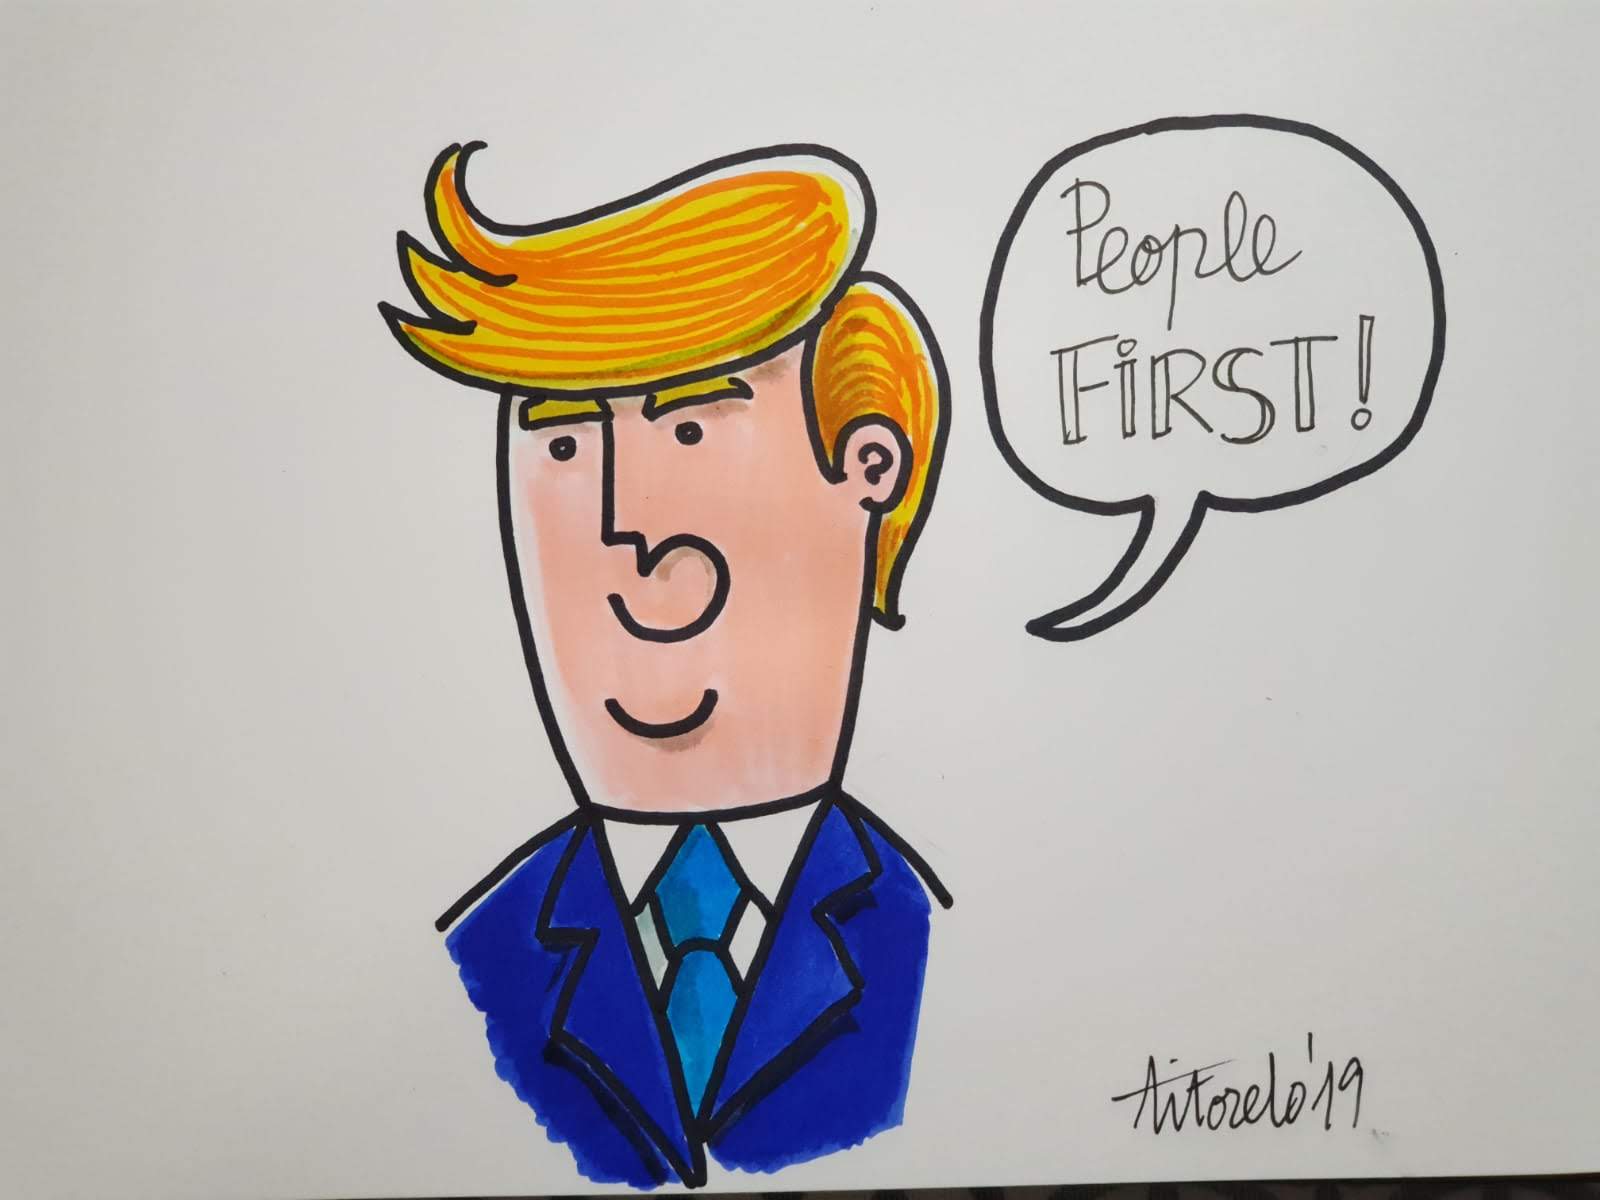 People
FIRST!
Aitorelo'19